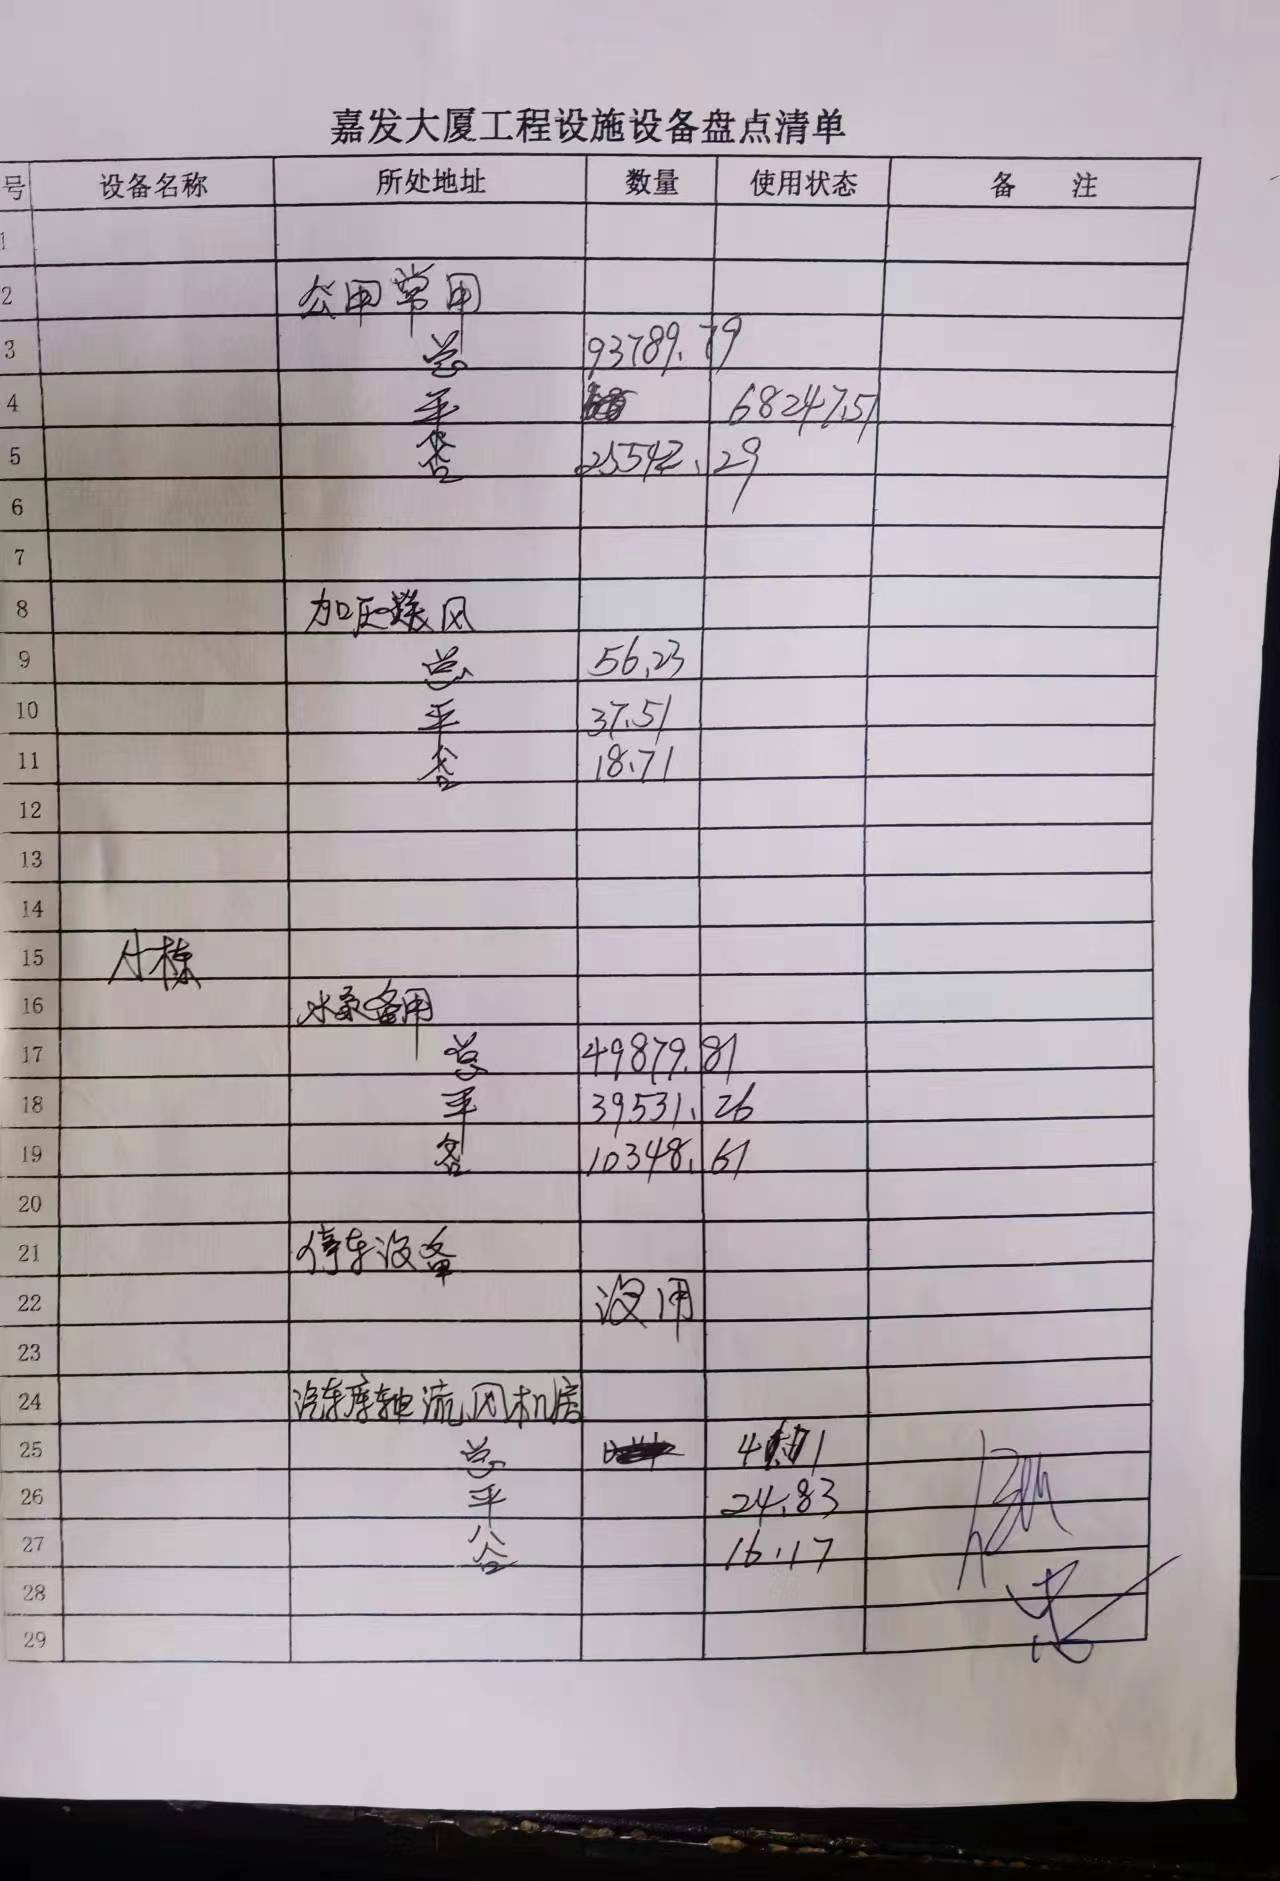 嘉发大厦工程设施设备盘点清单
号 设备名称 所处地址 数量 使用状态 备 注
1
2 公用常用
3 总 93789.79
4 平 68247.51
5 谷 25542.29
6
7
8 加压送风
9 总 56.23
10 平 37.51
11 谷 18.71
12
13
14
15 A栋
16 水泵备用
17 总 49879.81
18 平 39531.26
19 谷 10348.61
20
21 停车设备
22 没用
23
24 汽车库轴流风机房
25 总
26 平 24.83
27 谷 16.17
28
29